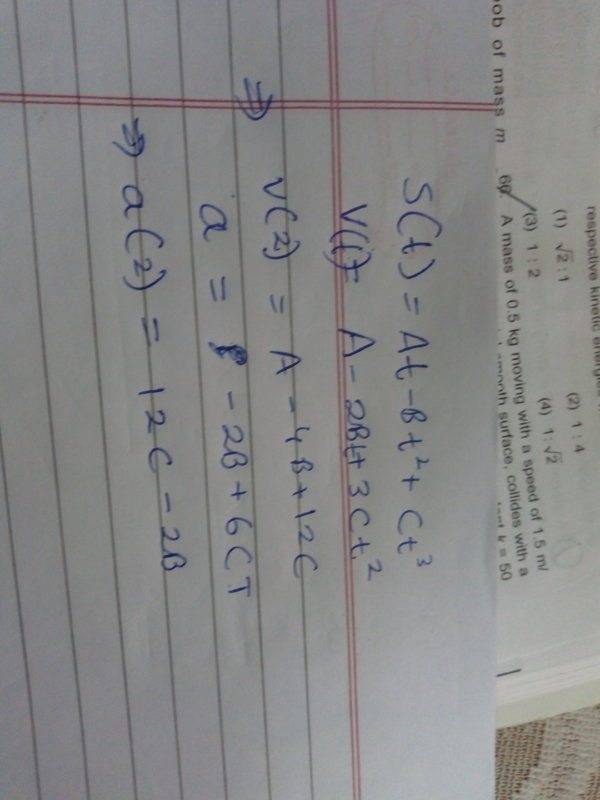 respective kinetic energies
(1) √2 : 1 (2) 1 : 4
(3) 1 : 2 (4) 1 : √2
ob of mass m
66. A mass of 0.5 kg moving with a speed of 1.5 m/
smooth surface, collides with a
k = 50
S(t) = At - Bt² + Ct³
V(t) = A - 2Bt + 3Ct²
⇒ V(2) = A - 4B + 12C
a = - 2B + 6CT
⇒ a(2) = 12C - 2B